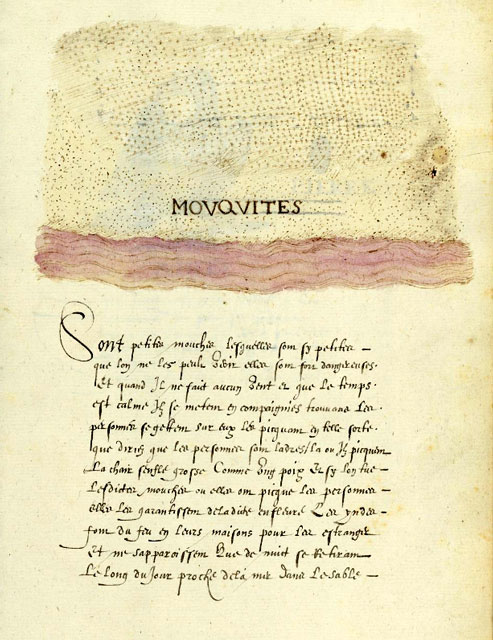 MOVQVITES
Sont petites mouches lesquelles sont sy petites
que lon ne les peult veoir elles sont fort dangereuses
Et quand Il ne fait aucun vent et que le temps
est calme Ilz se metent en compaignies trouvans les
personnes se gettent sur eux les picquant en telle sorte
que diriez que les personnes sont ladres / la ou Ilz picquent
La chair senfle grosse Comme ung poix Et sy lon tue
Lesdictes mouches ou elles ont picque les personnes
elles les garantissent de ladicte enfleure Les yndes
font du feu en leurs maisons pour les estranger
Et ne sapparoissent Que de nuict se Retirant
Le long du Jour proche de la mer dans Le sable